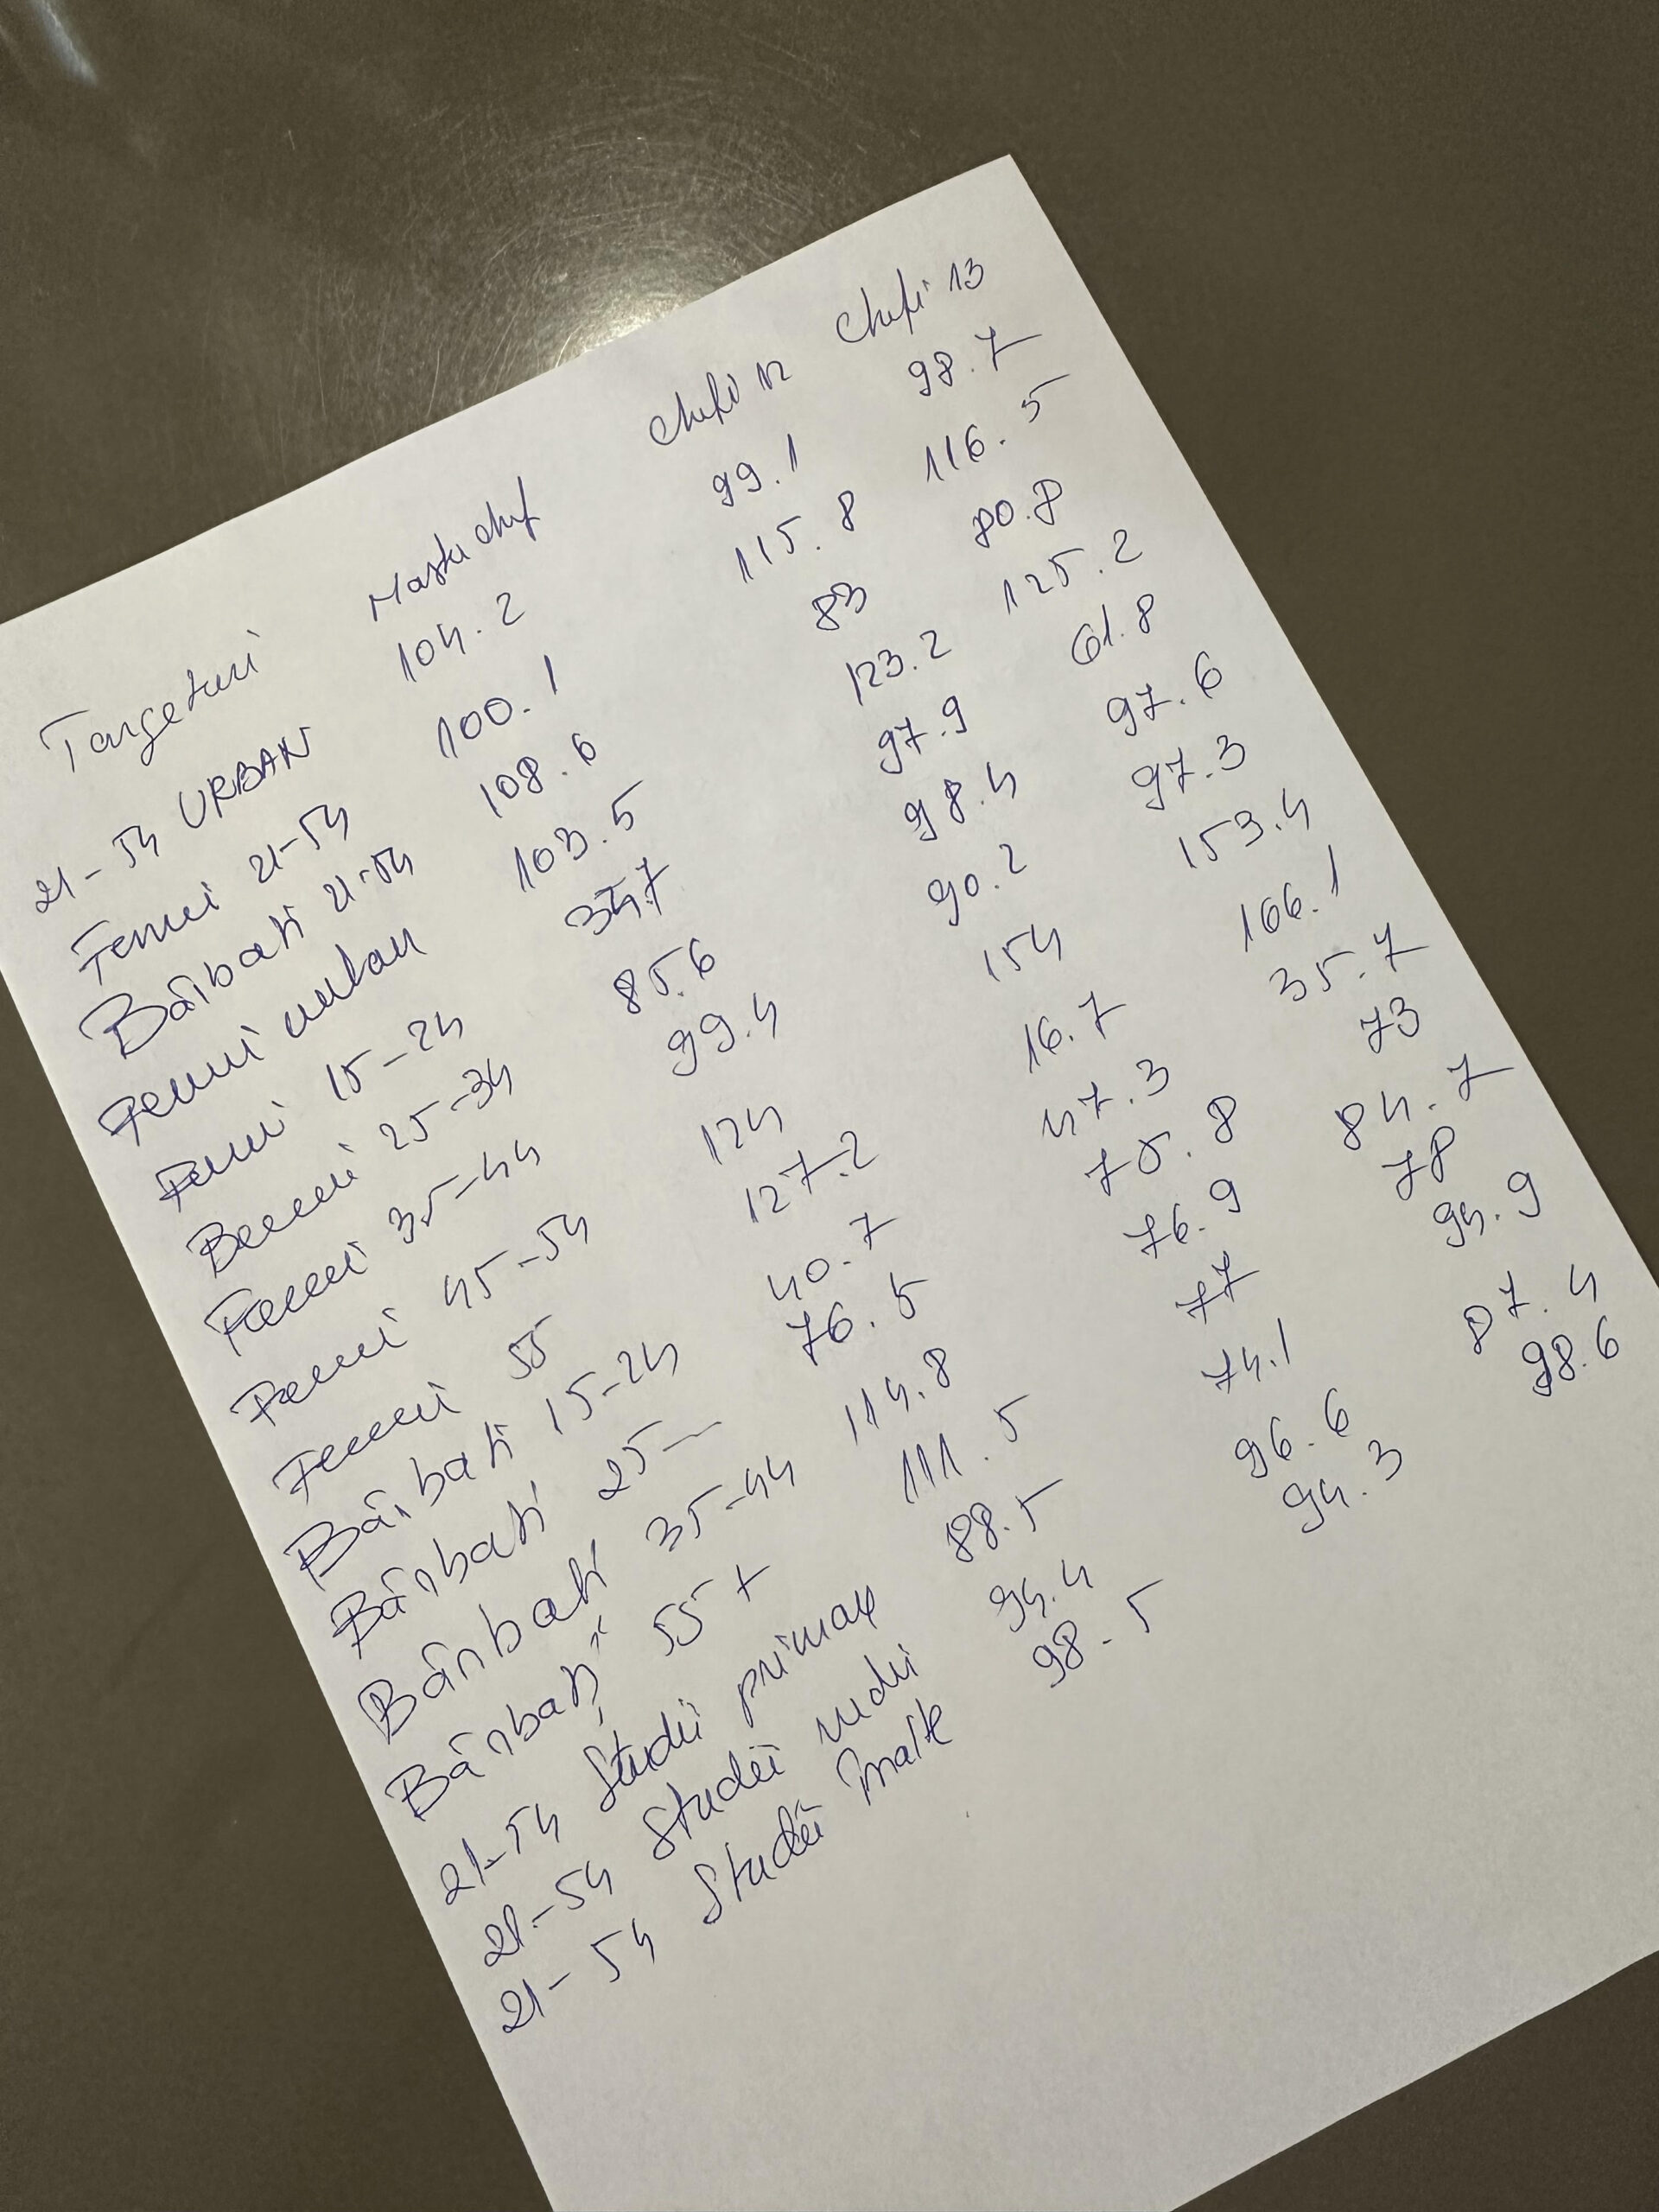 Targeturi Masterchef Chefi 12 Chefi 13
21-54 URBAN 104.2 99.1 98.7
Femei 21-54 100.1 115.8 116.5
Bărbati 21-54 108.6 83 80.8
Femei urban 103.5 123.2 125.2
Femei 15-24 97.9 61.8
Femei 25-34 85.6 98.4 97.6
Femei 35-44 99.4 90.2 97.3
Femei 45-54 124 154 153.4
Femei 55 127.2 16.7 106.1
Bărbati 15-24 40.7 47.3 35.7
Bărbati 25- 76.5 75.8 73
Bărbati 35-44 114.8 76.9 84.7
Bărbați 55+ 111.5 77 78
21-54 Studii primare 88.5 74.1 94.9
21-54 Studii medii 94.4 96.6 87.4
21-54 Studii Inalte 98.5 94.3 98.6